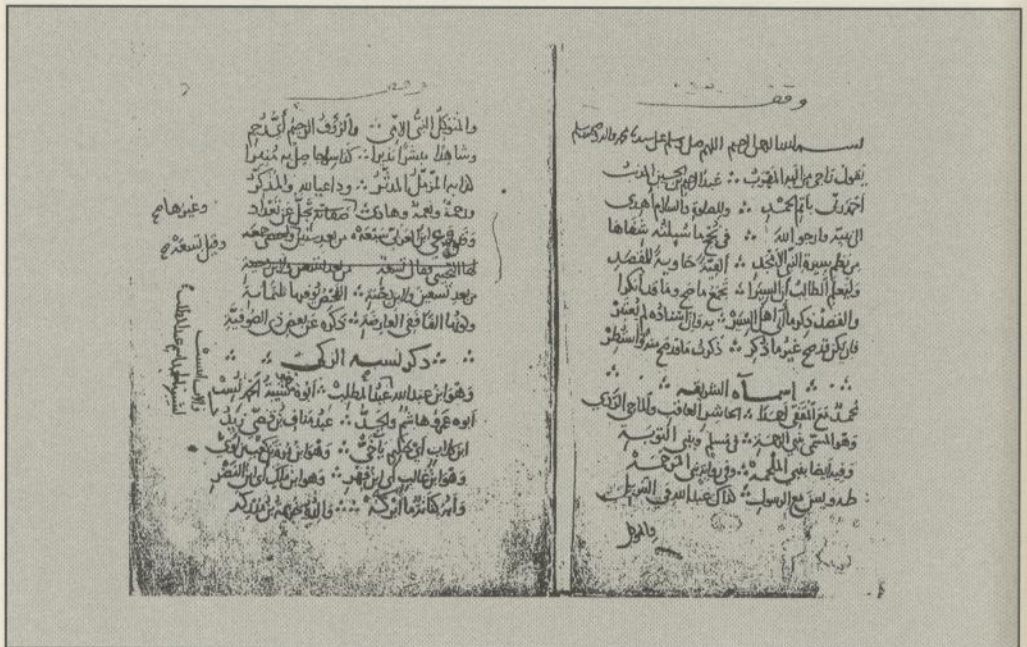 وقف
بسم الله الرحمن الرحيم اللهم صل وسلم على سيدنا محمد واله وصحبه وسلم
يقول راجي من اليه المهرب ∴ عبد الرحيم بن الحسين المذنب
احمد ربي باتم الحمد ∴ وللصلاة والسلام اهدي
الى نبيه وارجو الله ∴ في نجح ما سئلته شفاها
من نظم سيرة النبي الامجد ∴ الفية حاوية للمقصد
وليعلم الطالب ان السيرا ∴ تجمع ما صح وما قد انكرا
والقصد ذكر ما اتى اهل السير ∴ به وان اسناده لم يعتبر
فان يكن قد صح غير ما ذكر ∴ ذكرت ما قد صح منه واستطر
∴ اسماؤه الشريفه ∴
محمد مع المقفى احمدا ∴ الحاشر العاقب والماحي الردى
وهو المسمى بنبي الرحمة ∴ في مسلم وبنبي التوبة
وفيه ايضا بنبي الملحمة ∴ وفي رواية نبي المرحمة
طه ويس مع الرسول ∴ كذاك عبد الله في التنزيل
والمتوكل
وقف
والمتوكل النبي الامي ∴ والرؤف الرحيم اي رحم
وشاهدا مبشرا نذيرا ∴ كذا سراجا صل به منيرا
كذا به المزمل المدثر ∴ وداعيا لله والمذكر
ورحمة ونعمة وهادي ∴ تجل عن تعداد
وغيرها صح
وقد وعى ابن العربي سبعة ∴ من بعد ستين
وقيل تسعة صح
من بعد تسعين ولابن دحية ∴ الفحص يوفيها ثلثماية
وكونها الفا ففي العارضة ∴ ذكره عن بعض ذي الصوفية
∴ ذكر نسبه الزكي ∴
وهو ابن عبد الله عبد المطلب ∴ ابوه شيبة الحمد نسب
ابوه عمرو هاشم والجد ∴ عبد مناف بن قصي زيد
ابن كلاب اي حكيم يا اخي ∴ وهو ابن مرة بن كعب بن لؤي
وهو ابن غالب اي ابن فهر ∴ وهو ابن مالك اي ابن النضر
وابه كنانة ما ابركه ∴ والده خزيمة بن مدركه